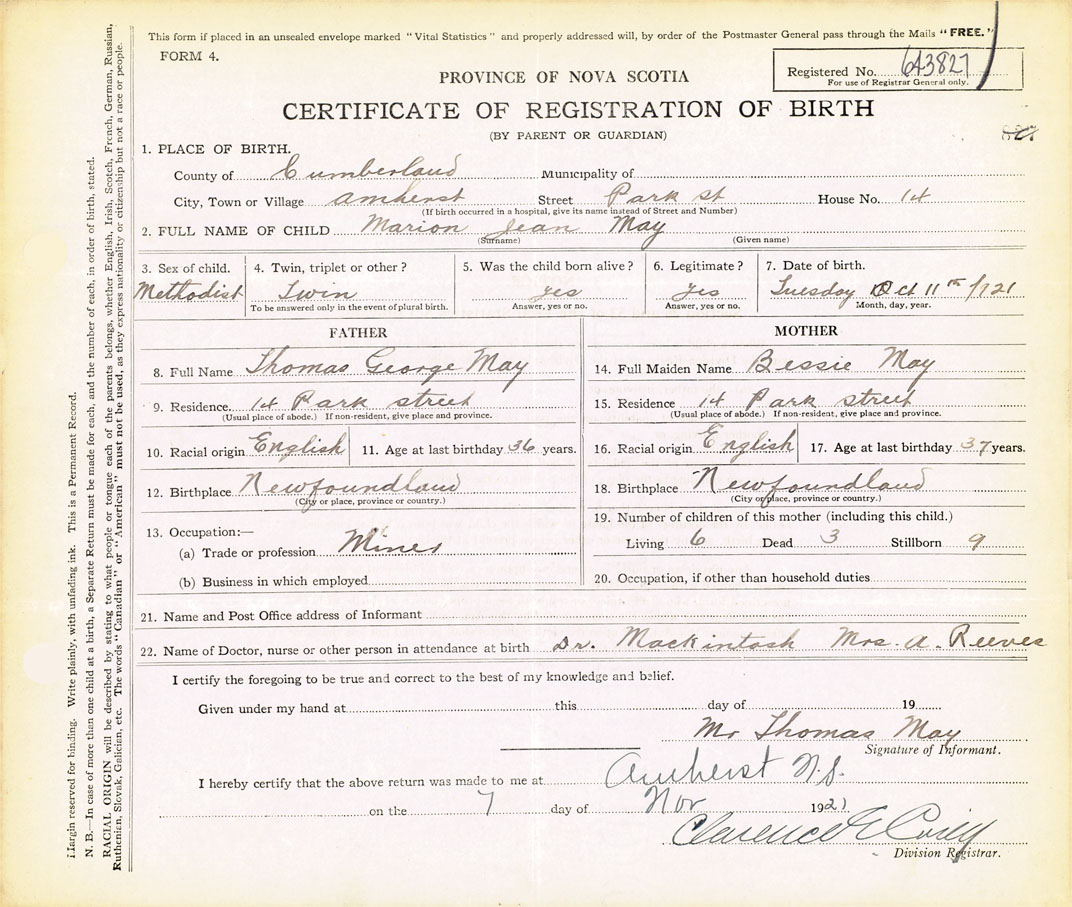 This form if placed in an unsealed envelope marked "Vital Statistics" and properly addressed will, by order of the Postmaster General pass through the Mails "FREE."
FORM 4.
Registered No. 643827
For use of Registrar General only.
PROVINCE OF NOVA SCOTIA
CERTIFICATE OF REGISTRATION OF BIRTH
(BY PARENT OR GUARDIAN)
827
1. PLACE OF BIRTH.
County of Cumberland Municipality of
City, Town or Village Amherst Street Park st House No. 14
(If birth occurred in a hospital, give its name instead of Street and Number)
2. FULL NAME OF CHILD Marion Jean May
(Surname) (Given name)
3. Sex of child. 4. Twin, triplet or other? 5. Was the child born alive? 6. Legitimate? 7. Date of birth.
Methodist Twin yes yes Tuesday Oct 11th /1921
To be answered only in the event of plural birth. Answer, yes or no. Answer, yes or no. Month, day, year.
FATHER
8. Full Name Thomas George May
9. Residence 14 Park street
(Usual place of abode.) If non-resident, give place and province.
10. Racial origin English 11. Age at last birthday 36 years.
12. Birthplace Newfoundland
(City or place, province or country.)
13. Occupation:—
(a) Trade or profession Miner
(b) Business in which employed
MOTHER
14. Full Maiden Name Bessie May
15. Residence 14 Park street
(Usual place of abode.) If non-resident, give place and province.
16. Racial origin English 17. Age at last birthday 37 years.
18. Birthplace Newfoundland
(City or place, province or country.)
19. Number of children of this mother (including this child.)
Living 6 Dead 3 Stillborn 9
20. Occupation, if other than household duties
21. Name and Post Office address of Informant
22. Name of Doctor, nurse or other person in attendance at birth Dr. Mackintosh Mrs. A. Reeves
I certify the foregoing to be true and correct to the best of my knowledge and belief.
Given under my hand at this day of 19
Mr Thomas May
Signature of Informant.
I hereby certify that the above return was made to me at Amherst N.S.
on the 7 day of Nov 1921
Clarence E Cody
Division Registrar.
Margin reserved for binding. Write plainly, with unfading ink. This is a Permanent Record.
N. B.—In case of more than one child at a birth, a Separate Return must be made for each, and the number of each, in order of birth, stated.
RACIAL ORIGIN will be described by stating to what people or tongue each of the parents belongs, whether English, Irish, Scotch, French, German, Russian,
Ruthenian, Slovak, Galician, etc. The words "Canadian" or "American" must not be used, as they express nationality or citizenship but not a race or people.